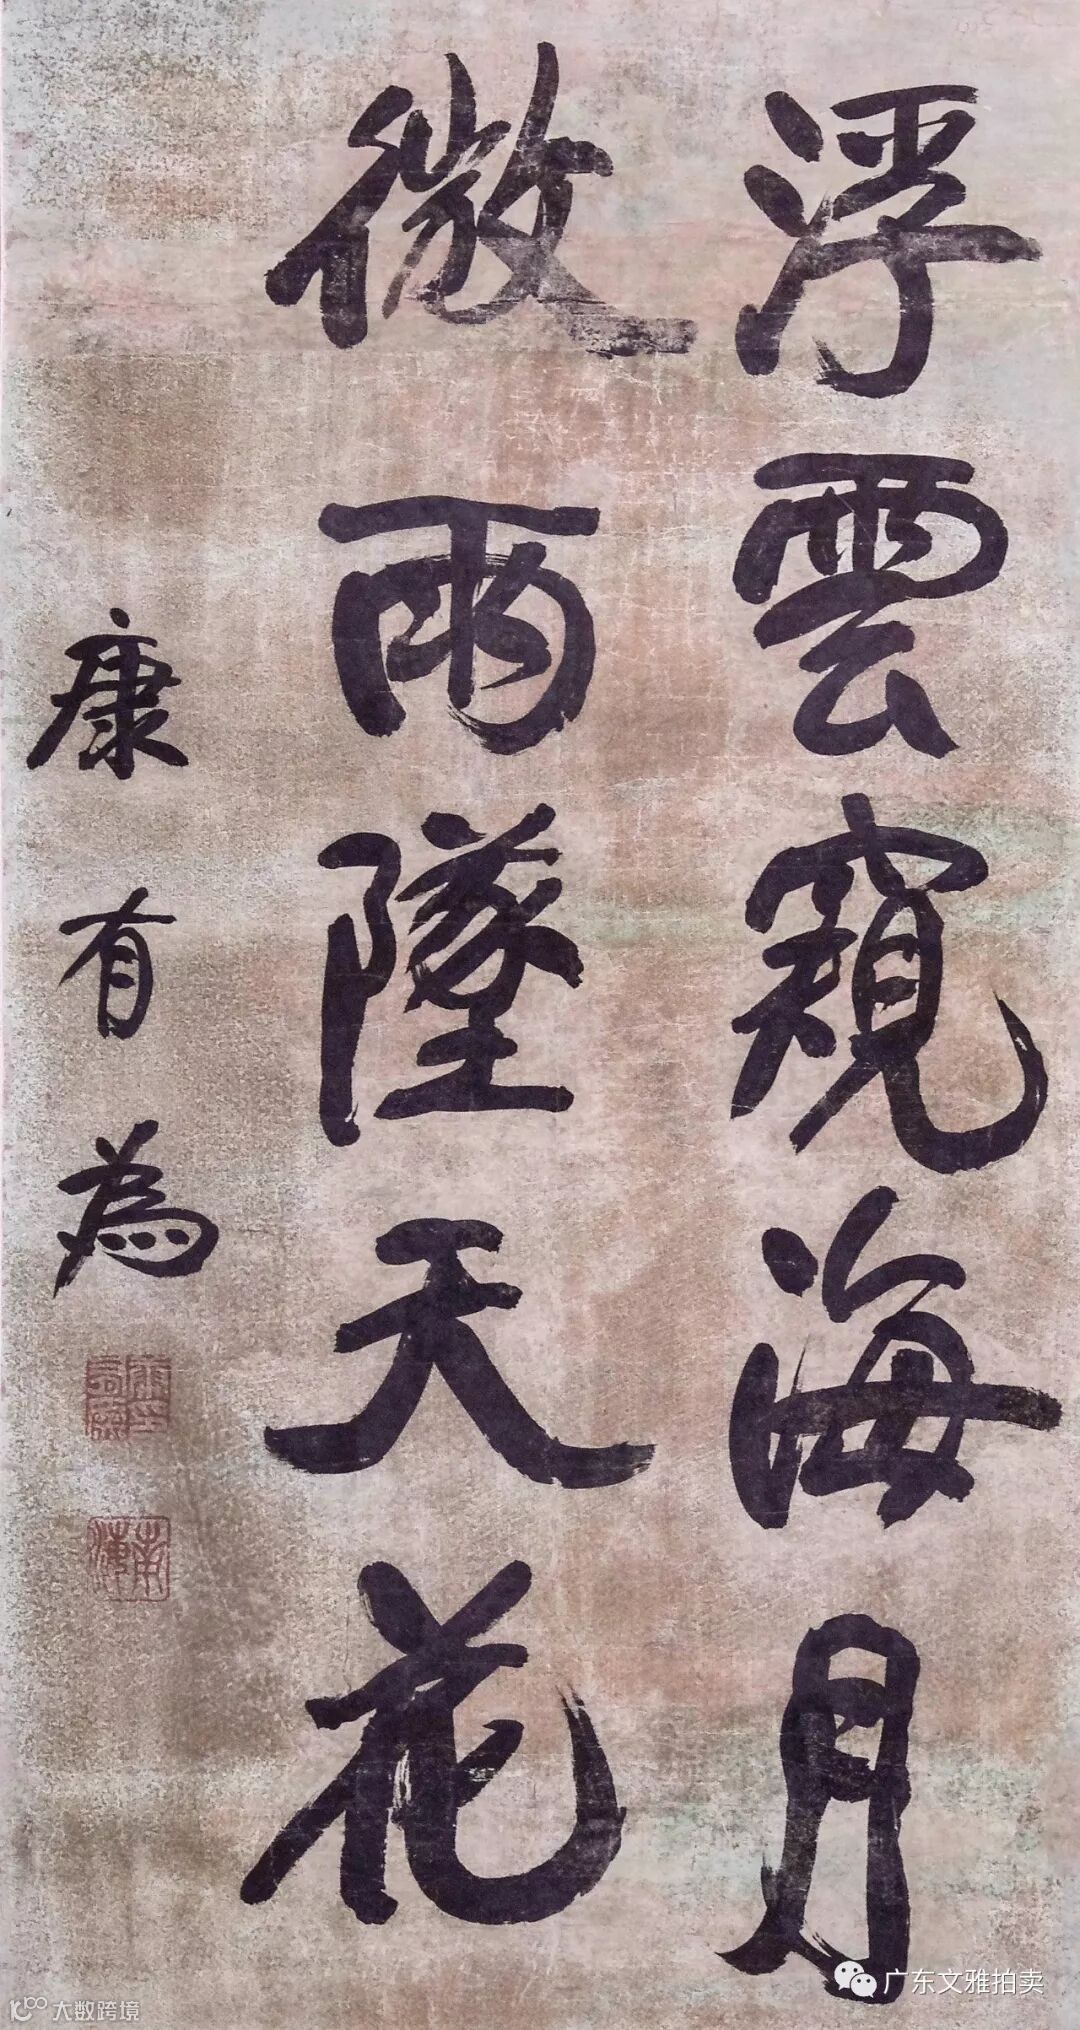 浮雲窺海月
微雨墜天花
康有為
广东文雅拍卖
大数跨境